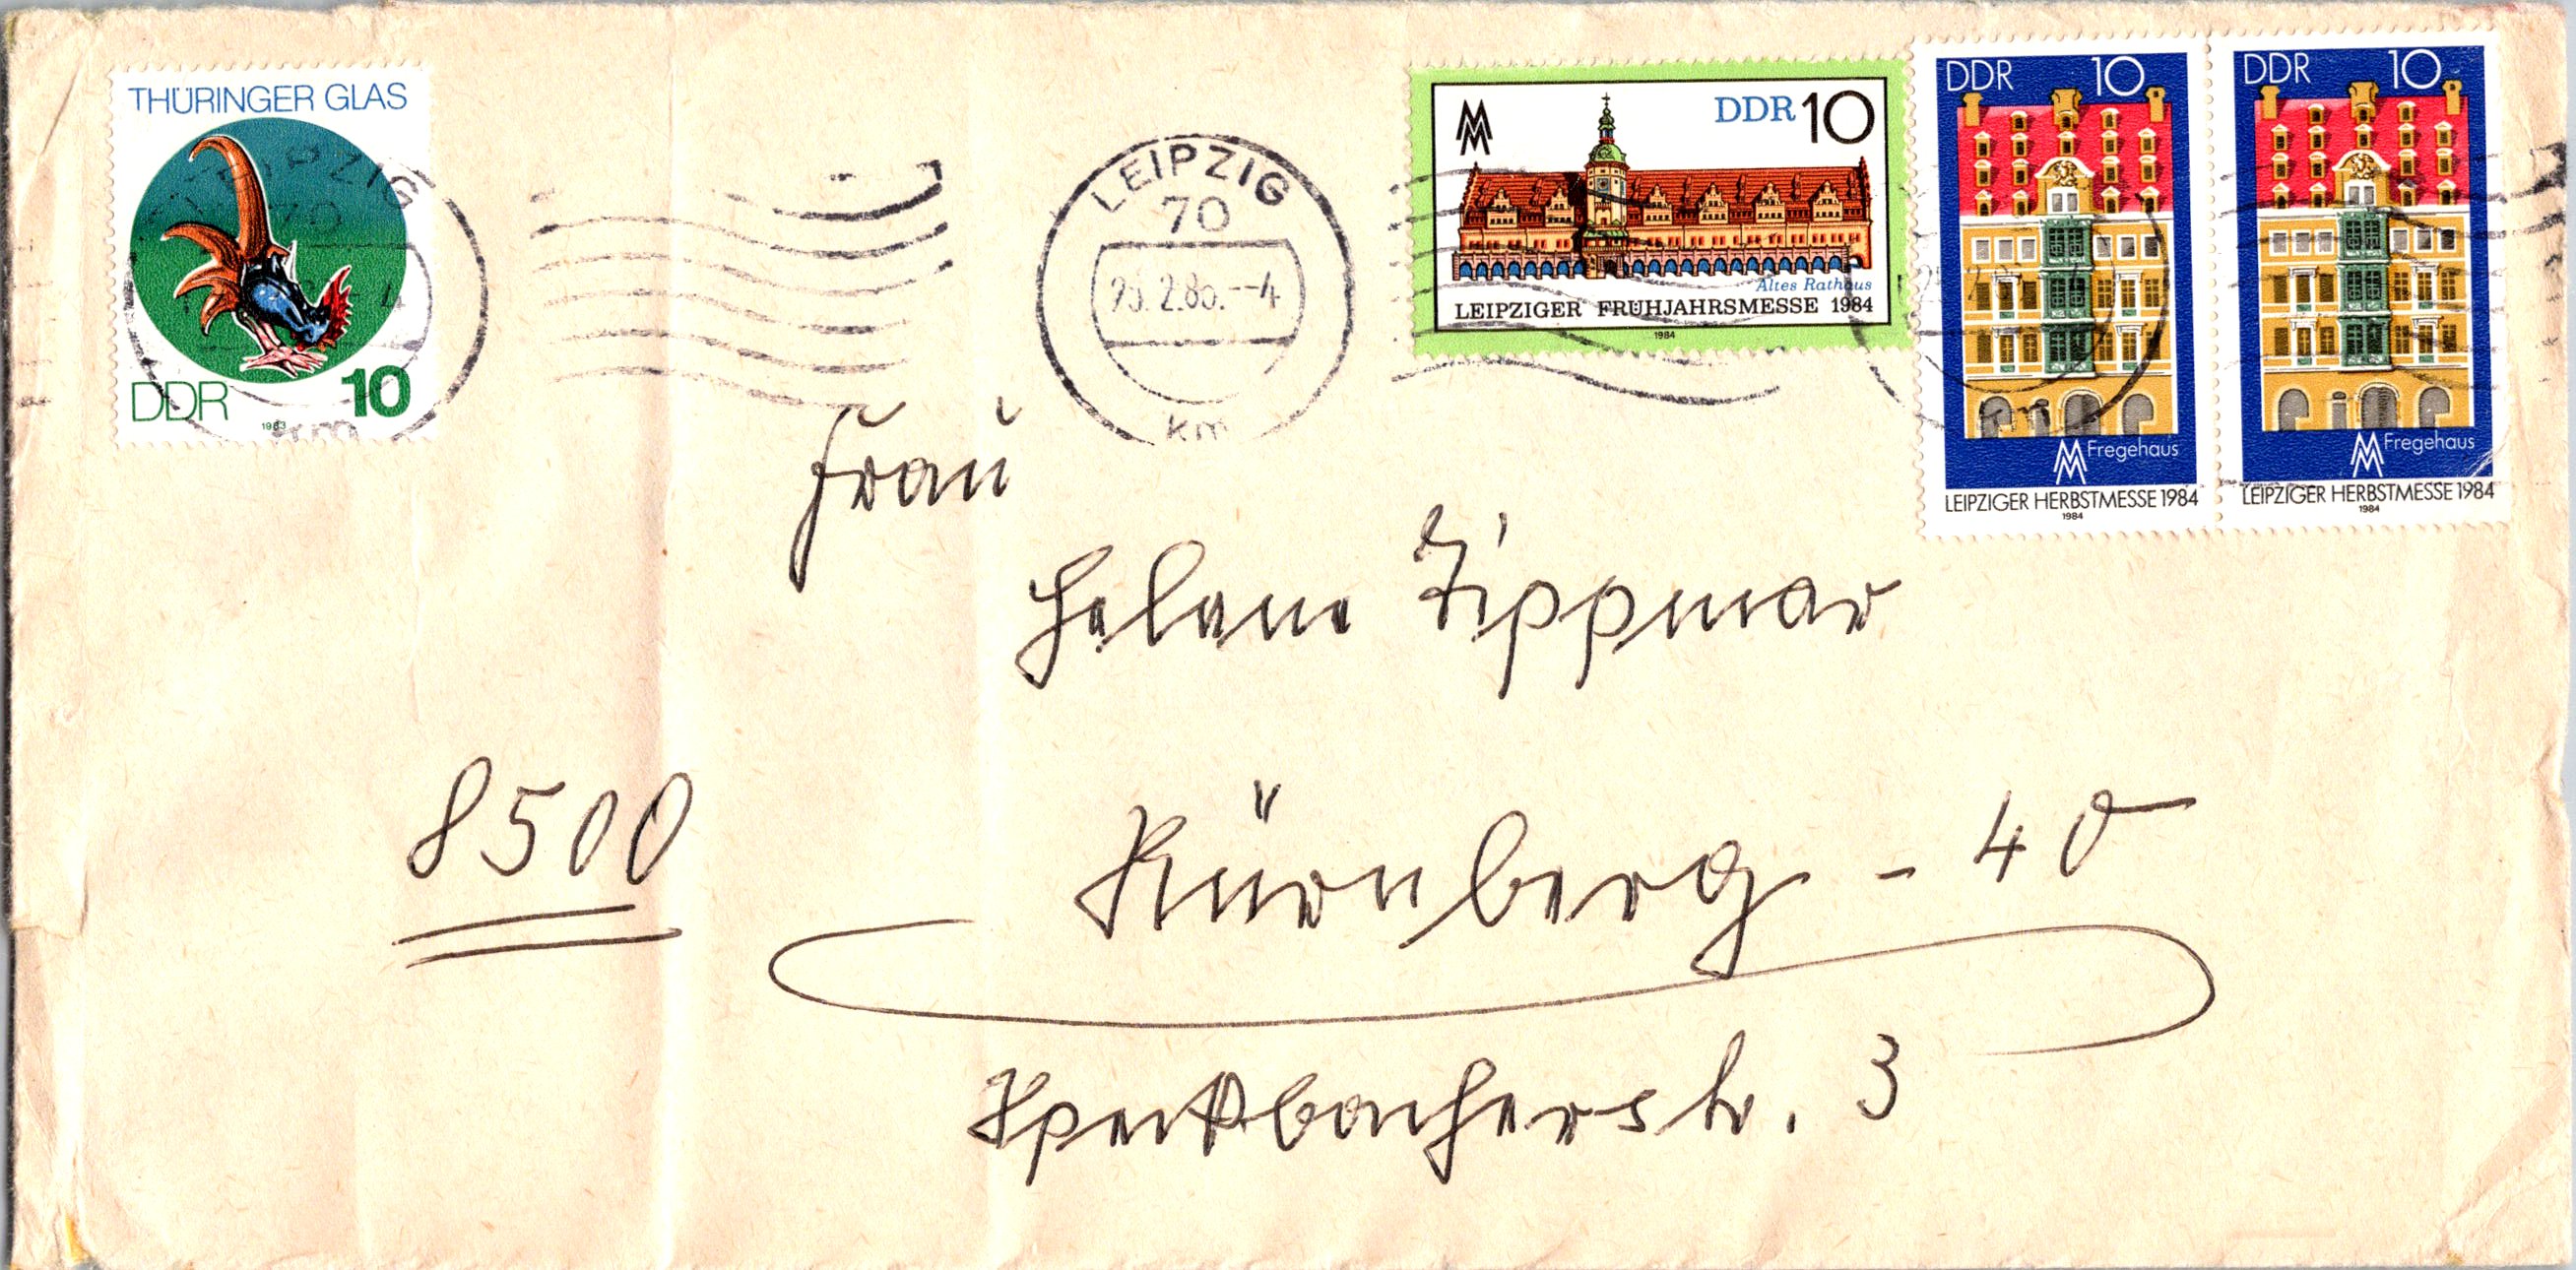 THÜRINGER GLAS
DDR 10
1983
LEIPZIG
70
km
MM DDR 10
Altes Rathaus
LEIPZIGER FRÜHJAHRSMESSE 1984
1984
DDR 10
MM Fregehaus
LEIPZIGER HERBSTMESSE 1984
1984
DDR 10
MM Fregehaus
LEIPZIGER HERBSTMESSE 1984
1984
Frau
Helene Tippmar
8500 Nürnberg - 40
Speckbacherstr. 3